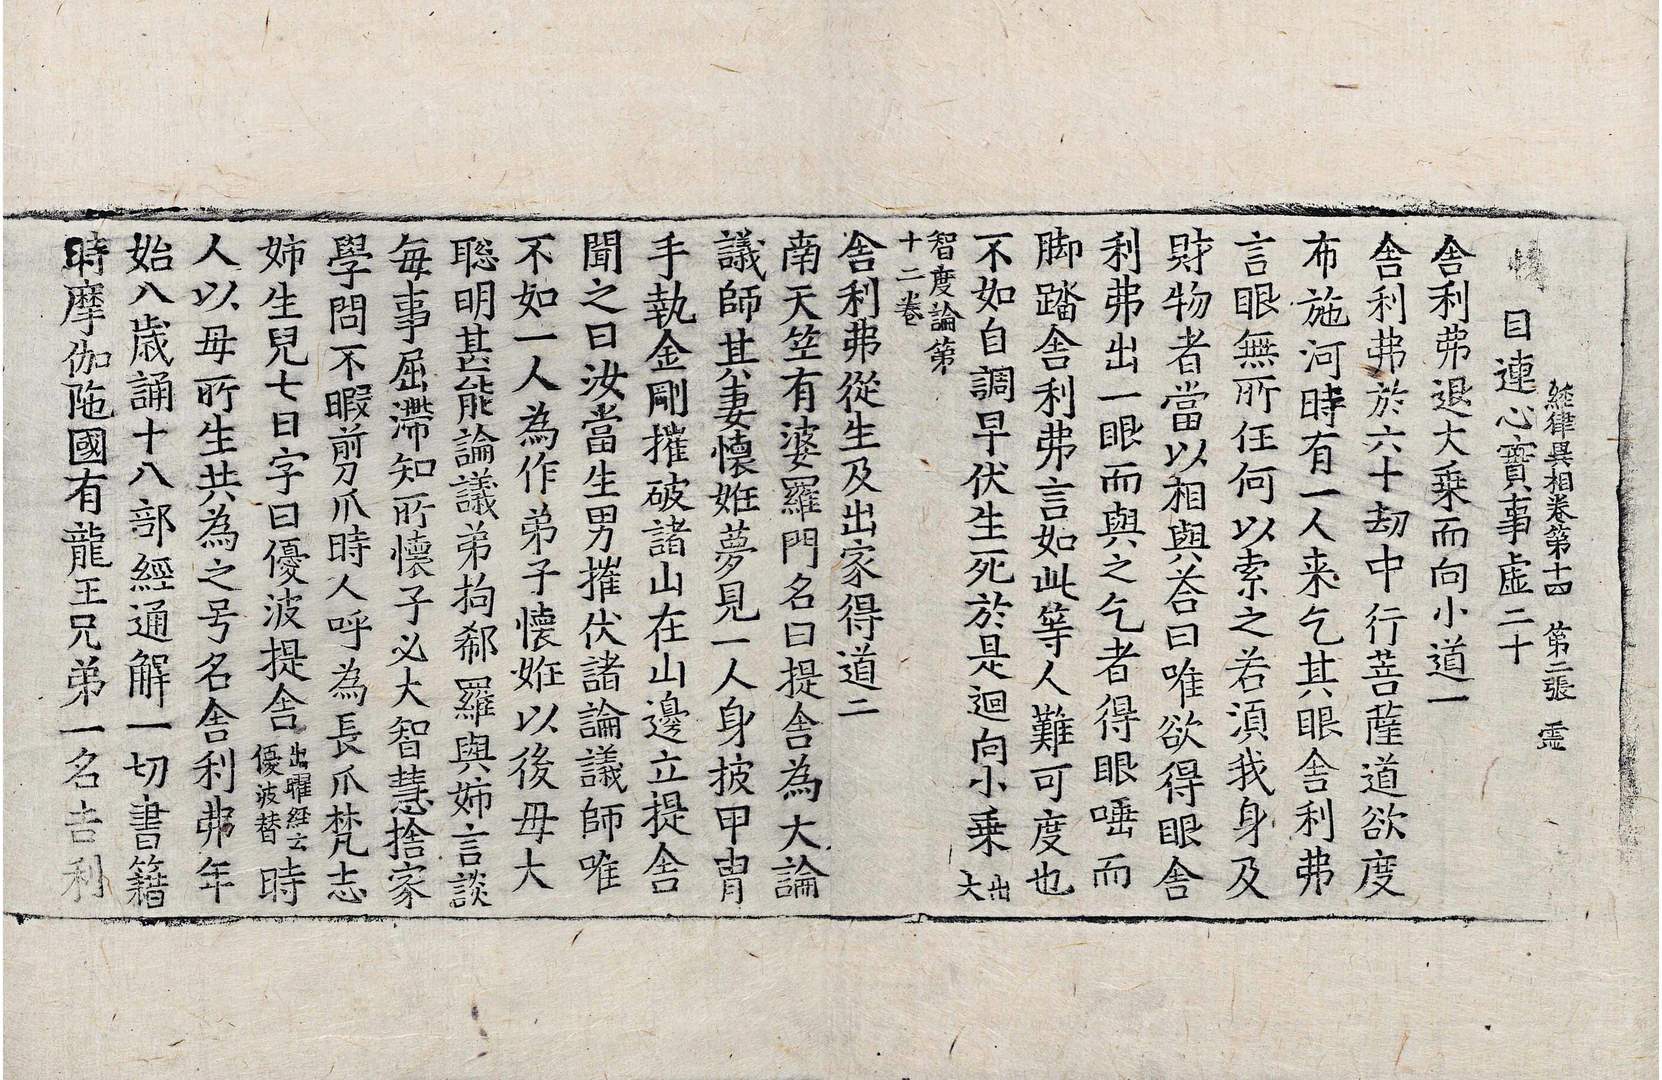 經律異相卷第十四 第二張 靈
目連心實事虛二十
舍利弗退大乘而向小道一
舍利弗於六十劫中行菩薩道欲度
布施河時有一人来乞其眼舍利弗
言眼無所任何以索之若湏我身及
財物者當以相與荅曰唯欲得眼舍
利弗出一眼而與之乞者得眼唾而
脚踏舍利弗言如此等人難可度也
不如自調早伏生死於是迴向小乘出大
智度論第
十二卷
舍利弗從生及出家得道二
南天竺有婆羅門名曰提舍為大論
議師其妻懷姙夢見一人身披甲冑
手執金剛摧破諸山在山邊立提舍
聞之曰汝當生男摧伏諸論議師唯
不如一人為作弟子懷姙以後母大
聡明甚能論議弟拘郗羅與姉言談
每事屈滯知所懷子必大智慧捨家
學問不暇剪爪時人呼為長爪梵志
姉生兒七日字曰優波提舍出曜經云優波替時
人以母所生共為之号名舍利弗年
始八歳誦十八部經通解一切書籍
時摩伽陁國有龍王兄弟一名吉利